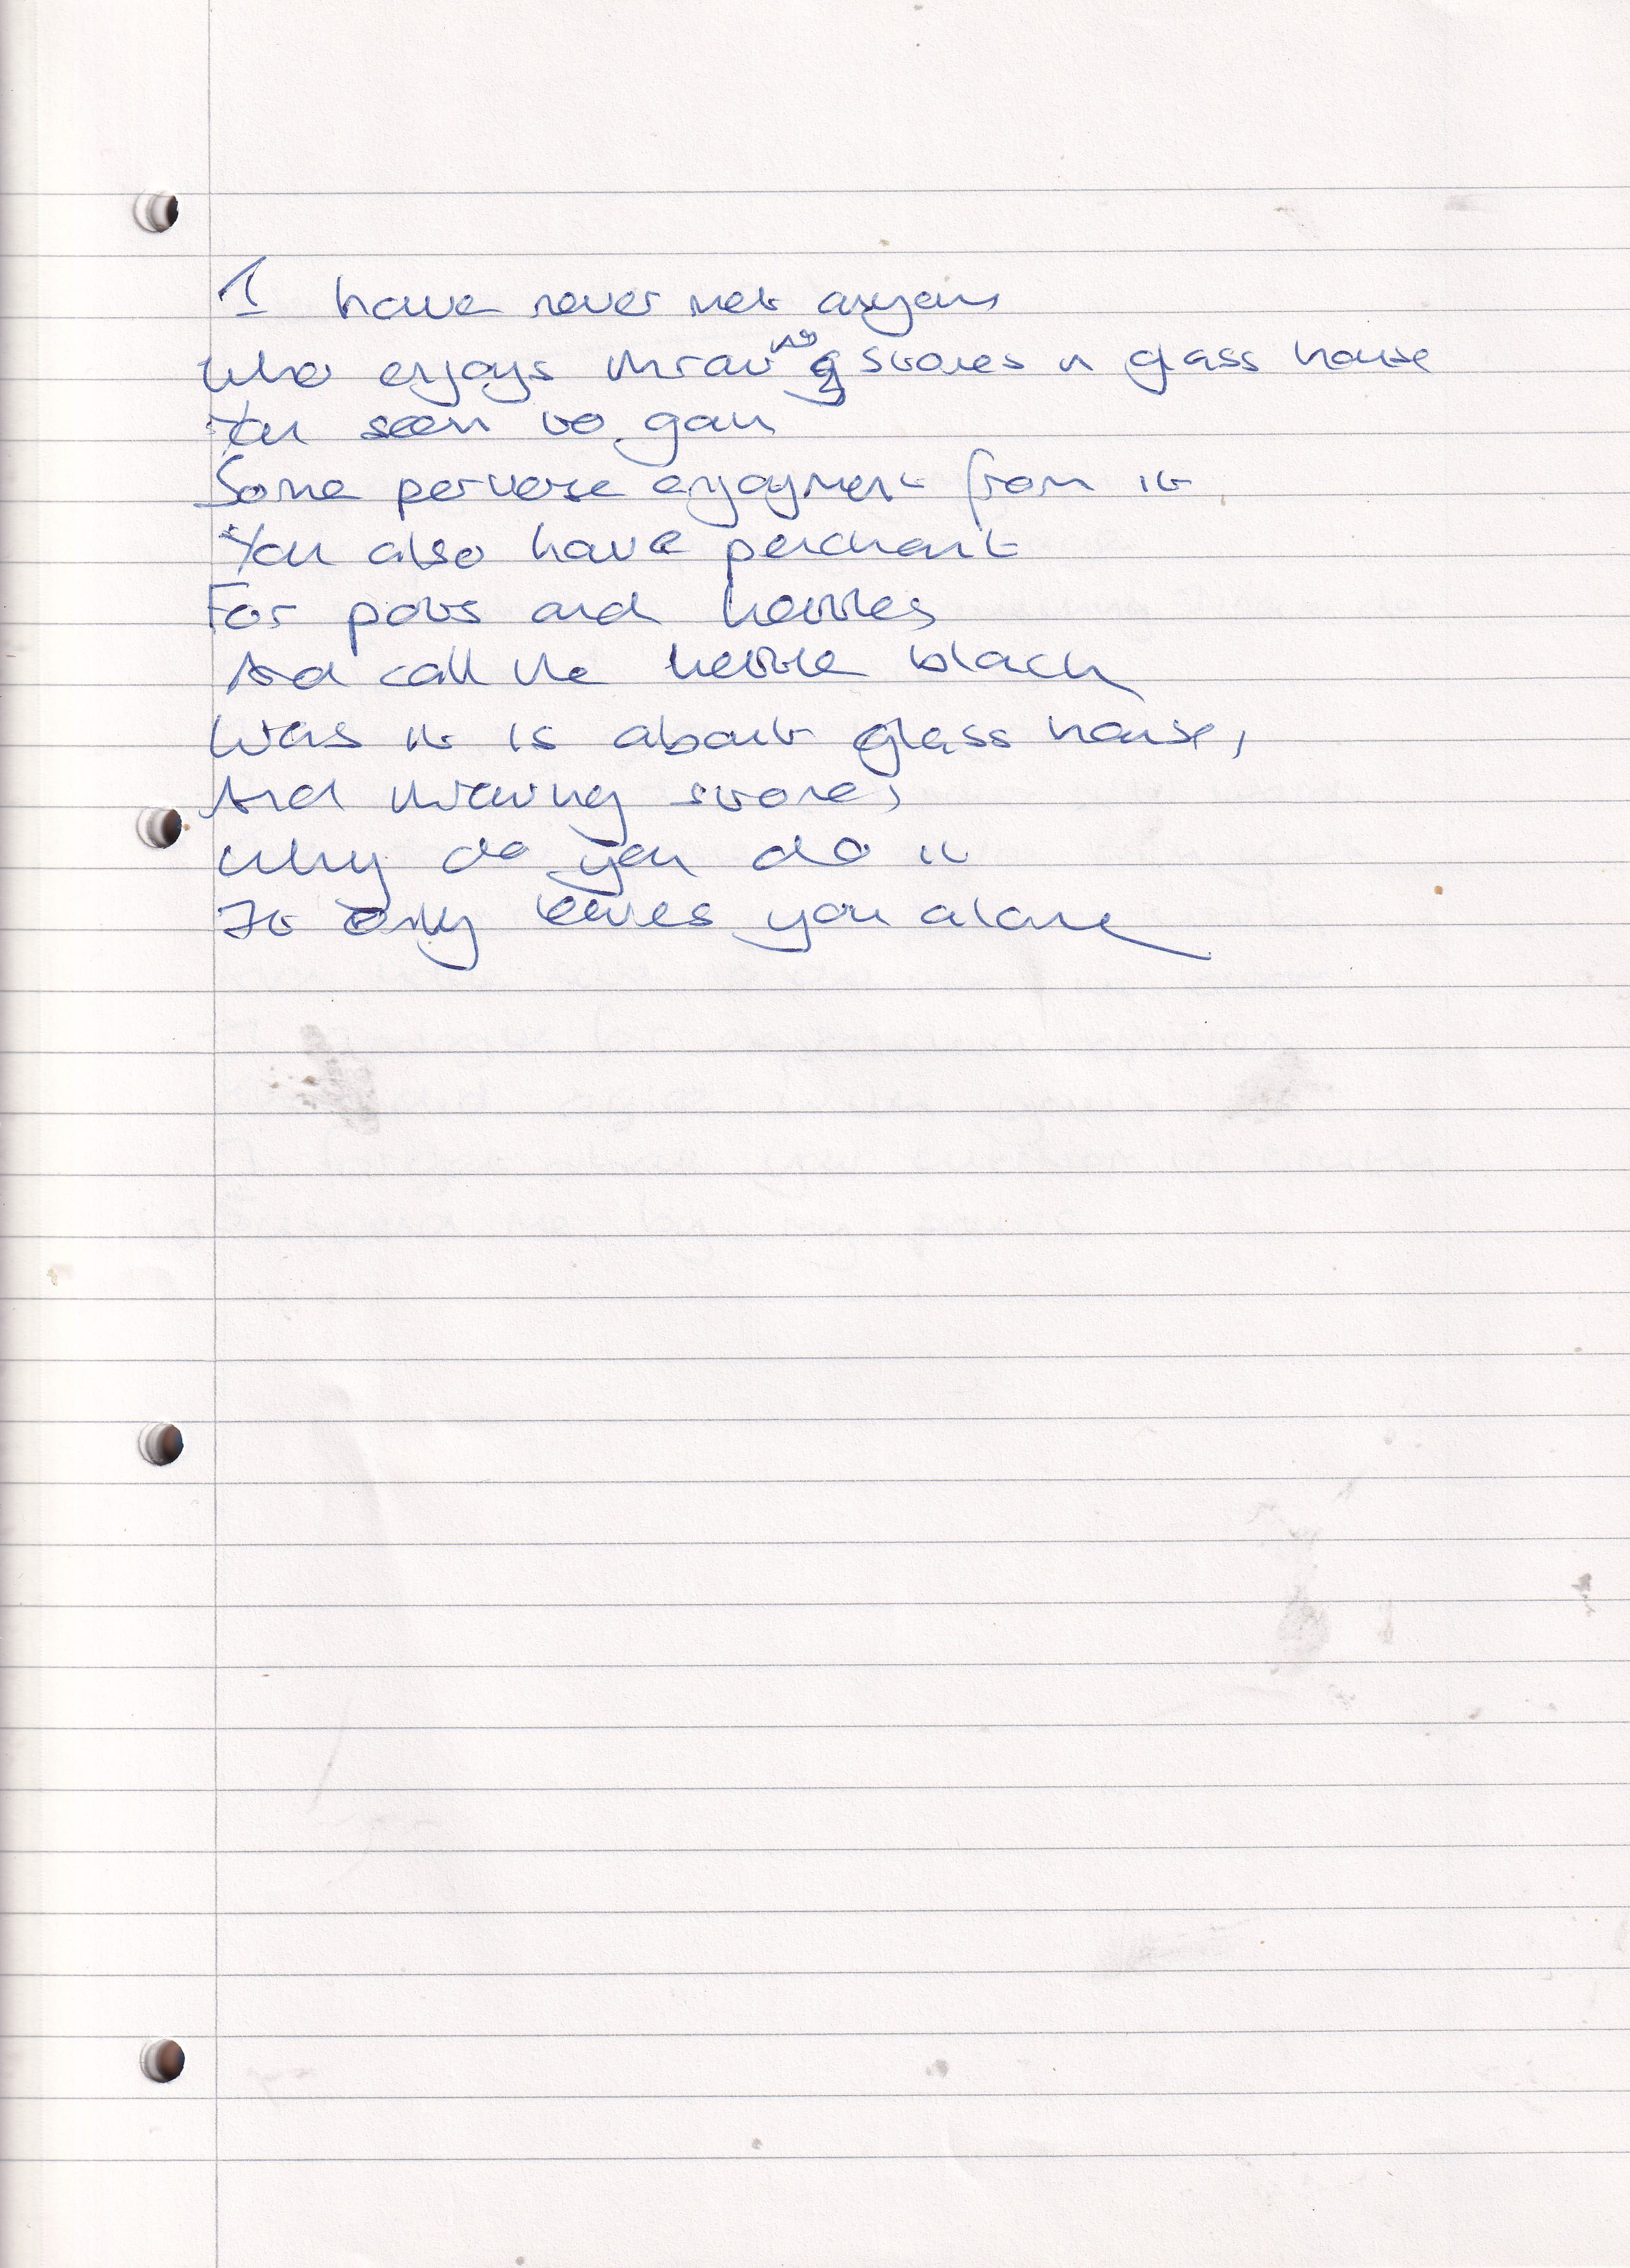 I have never met anyone
who enjoys throwing stones in glass house
You seem to gain
Some perverse enjoyment from it
You also have penchant
For pots and kettles
And call the kettle black
What it is about glass houses
And throwing stones
Why do you do it
It only leaves you alone